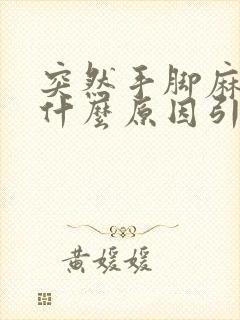 突然手脚麻
什麼原因引
黄媛媛